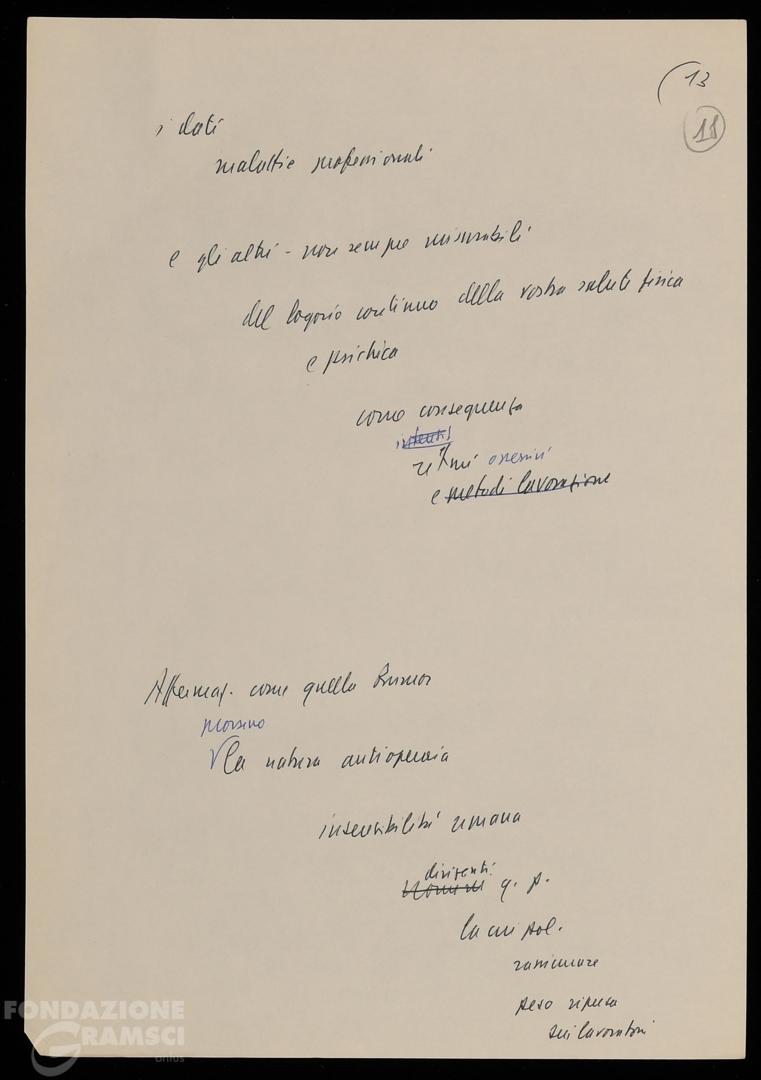 13
18
i dati
malattie professionali
e gli altri - non sempre misurabili
del logorio continuo della vostra salute fisica
e psichica
come conseguenza
intensi
ritmi ossessivi
e metodi lavorazione
Affermaz. come quella Rumor
provano
la natura antioperaia
insensibilità umana
dirigenti
q. p.
la cui pol.
rassicurare
peso ripresa
sui lavoratori
FONDAZIONE
GRAMSCI
onlus